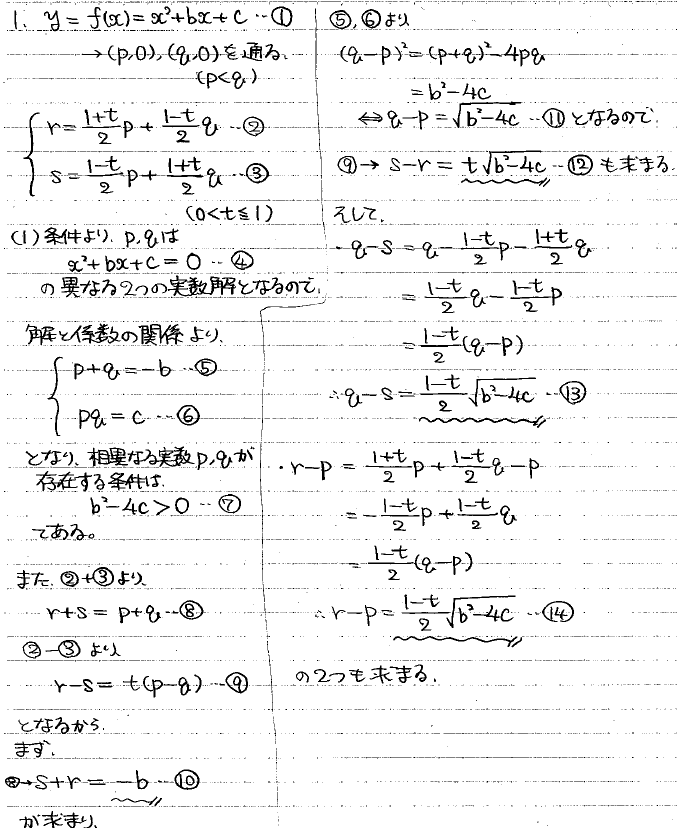 1. y = f(x) = x²+bx+c …①
→(p,0),(q,0)を通る.
(p<q)
{ r = \frac{1+t}{2}p + \frac{1-t}{2}q …②
s = \frac{1-t}{2}p + \frac{1+t}{2}q …③
(0<t≦1)
(1)条件より、p,qは
x²+bx+c = 0 …④
の異なる2つの実数解となるので、
解と係数の関係より、
{ p+q = -b …⑤
pq = c …⑥
となり、相異なる実数p,qが
存在する条件は、
b²-4c > 0 …⑦
である。
また、②+③より、
r+s = p+q …⑧
②-③より
r-s = t(p-q) …⑨
となるから、
まず、
⑧→ s+r = -b …⑩
が求まり、
⑤,⑥より
(q-p)² = (p+q)²-4pq
= b²-4c
⇔ q-p = √(b²-4c) …⑪となるので、
⑨→ s-r = t√(b²-4c) …⑫も求まる.
そして、
・q-s = q - \frac{1-t}{2}p - \frac{1+t}{2}q
= \frac{1-t}{2}q - \frac{1-t}{2}p
= \frac{1-t}{2}(q-p)
∴q-s = \frac{1-t}{2}√(b²-4c) …⑬
・r-p = \frac{1+t}{2}p + \frac{1-t}{2}q - p
= -\frac{1-t}{2}p + \frac{1-t}{2}q
= \frac{1-t}{2}(q-p)
∴r-p = \frac{1-t}{2}√(b²-4c) …⑭
の2つも求まる.